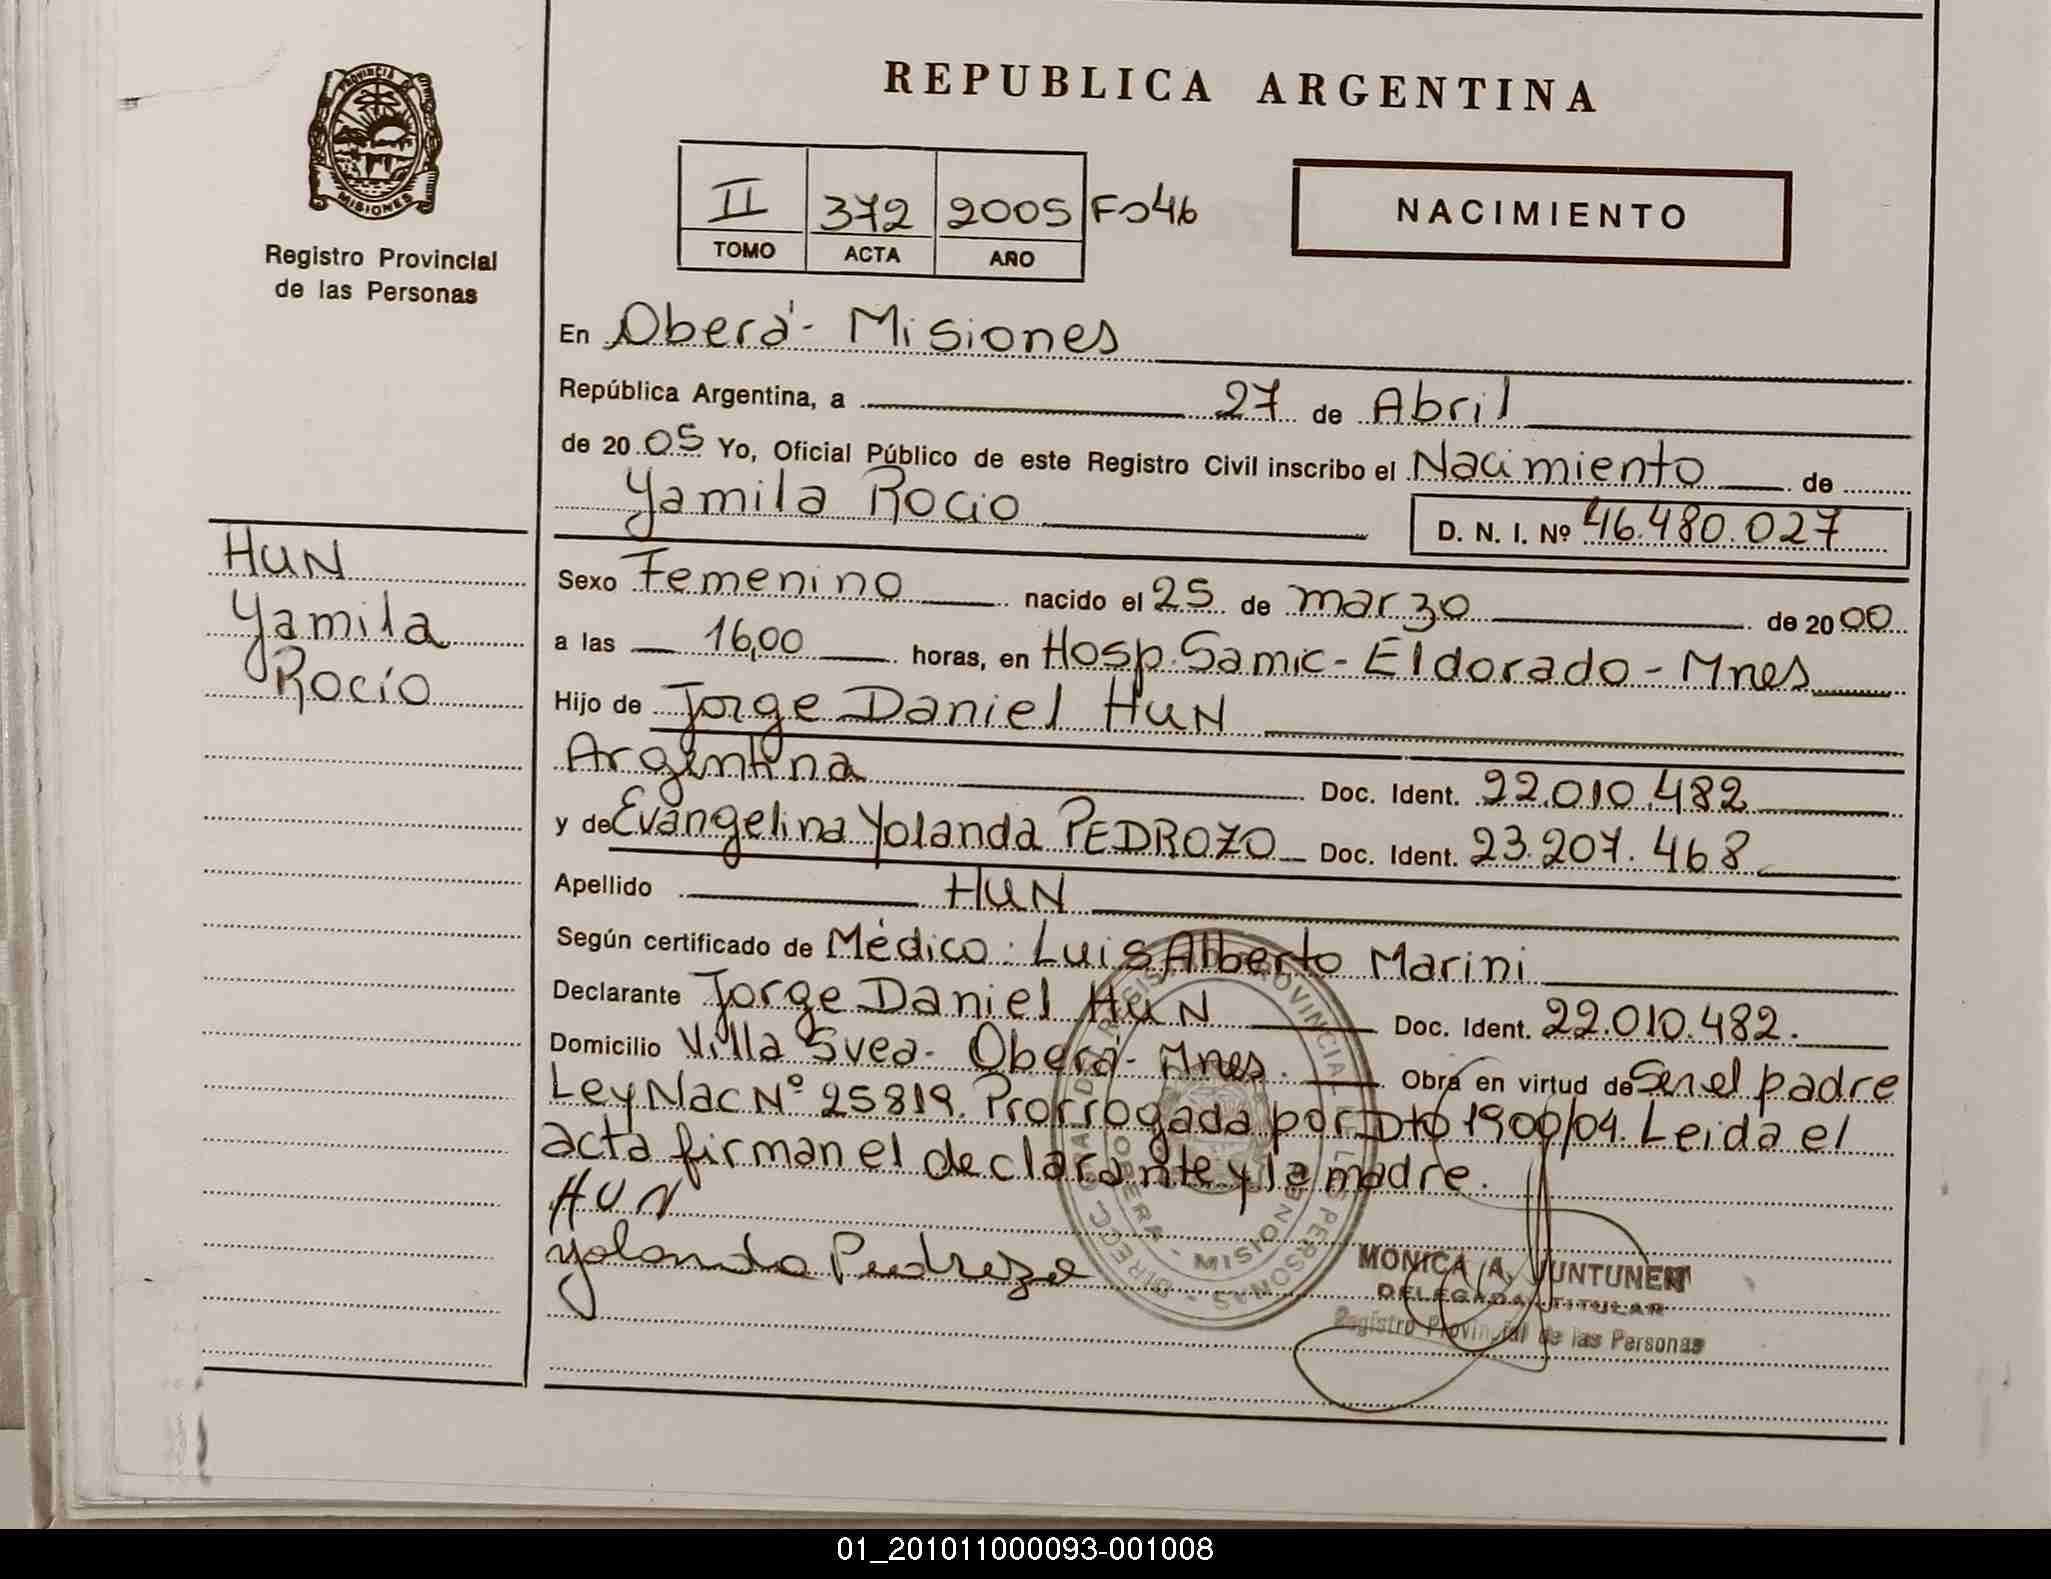 PROVINCIA DE
MISIONES
Registro Provincial
de las Personas
REPUBLICA ARGENTINA
II 372 2005 Fo46
TOMO ACTA AÑO
NACIMIENTO
En Oberá - Misiones
República Argentina, a 27 de Abril
de 2005 Yo, Oficial Público de este Registro Civil inscribo el Nacimiento de
Yamila Rocio D. N. I. Nº 46.480.027
HUN
Yamila
Rocío
Sexo Femenino nacido el 25 de marzo de 2000
a las 16,00 horas, en Hosp. Samic - Eldorado - Mnes
Hijo de Jorge Daniel HUN
Argentina Doc. Ident. 22.010.482
y de Evangelina Yolanda PEDROZO Doc. Ident. 23.207.468
Apellido HUN
Según certificado de Médico: Luis Alberto Marini
Declarante Jorge Daniel HUN Doc. Ident. 22.010.482.
Domicilio Villa Svea - Oberá - Mnes. Obra en virtud de Ser el padre
Ley Nac Nº 25819. Prorrogada por Dto 1900/04. Leida el
acta firman el declarante y la madre.
HUN
Yolanda Pedrozo
MONICA A. JUNTUNEN
DELEGADA TITULAR
Registro Provincial de las Personas
01_201011000093-001008